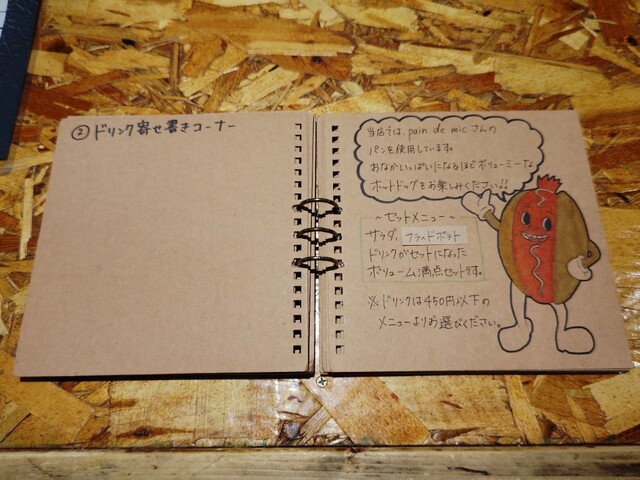 ② ドリンク寄せ書きコーナー
当店では、pain de micさんの
パンを使用しています。
おなかいっぱいになるほどボリューミーな
ホットドッグをお楽しみください!!
～セットメニュー～
サラダ、フライドポテト
ドリンクがセットになった
ボリューム満点セットです。
※ドリンクは450円以下の
メニューよりお選びください。